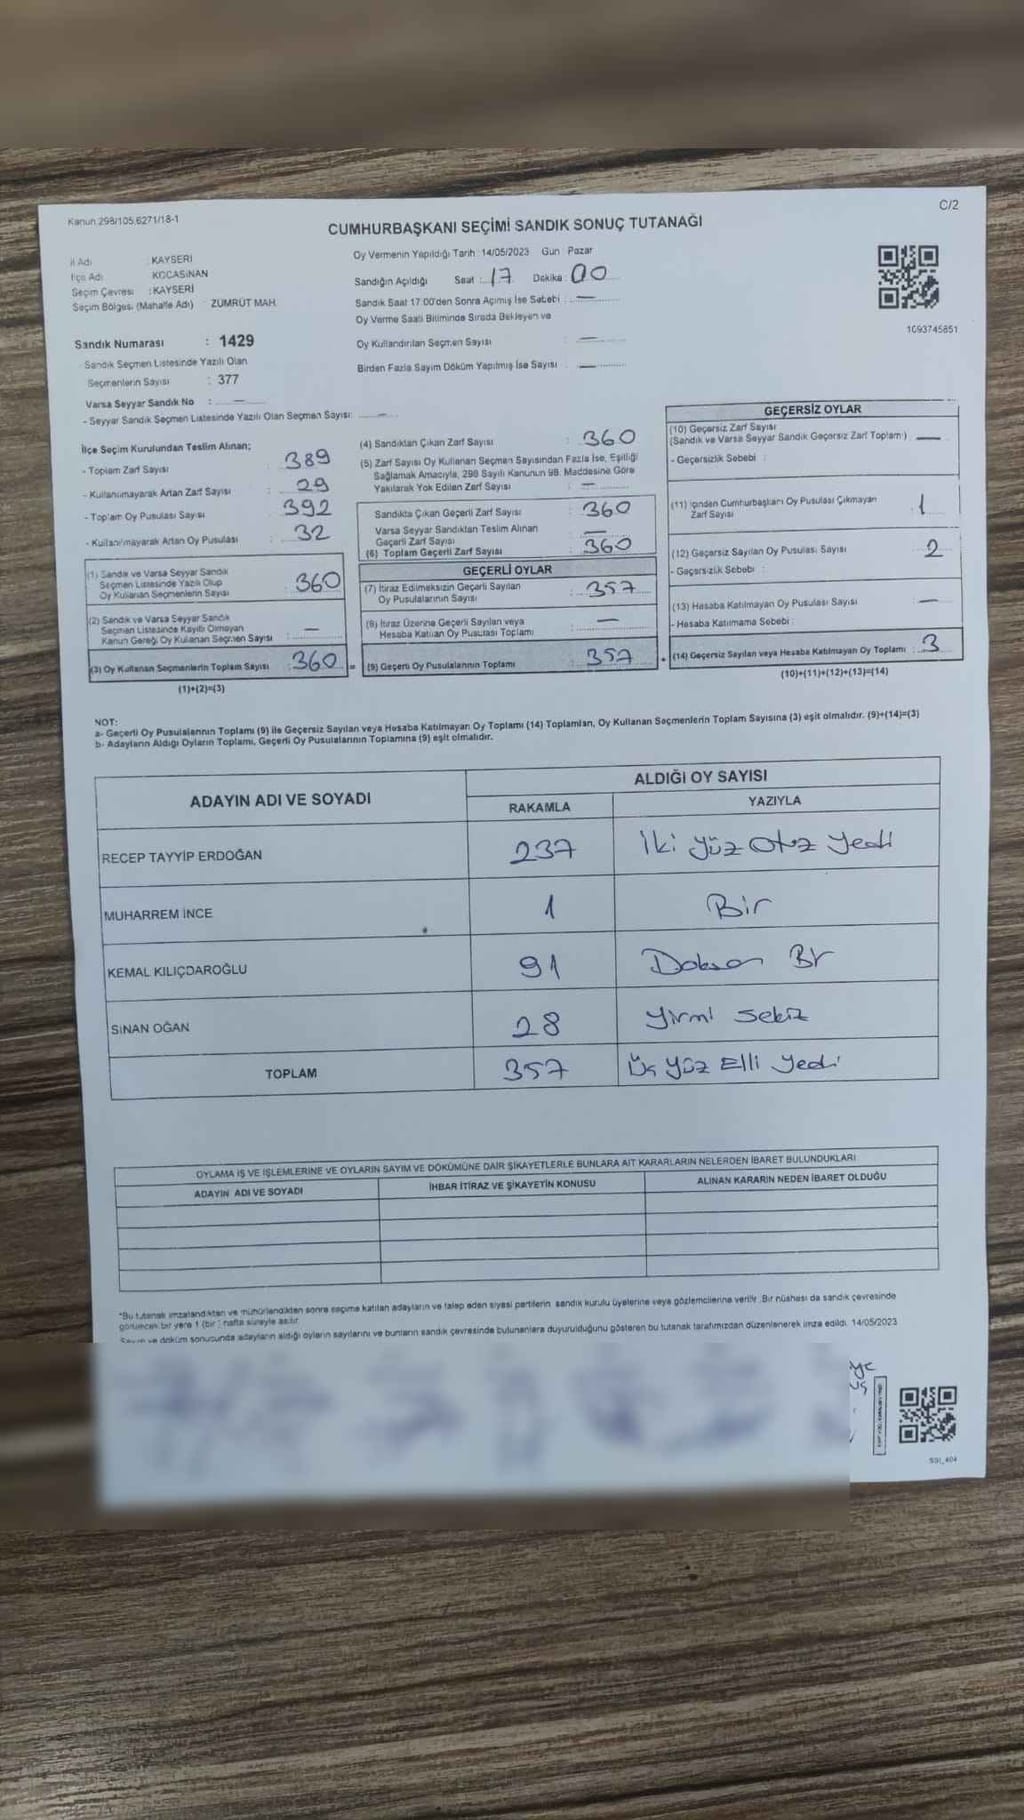 Kanun 298/105,6271/18-1
C/2
CUMHURBAŞKANI SEÇİMİ SANDIK SONUÇ TUTANAĞI
İl Adı : KAYSERİ
İlçe Adı : KOCASİNAN
Seçim Çevresi : KAYSERİ
Seçim Bölgesi (Mahalle Adı) : ZÜMRÜT MAH.
Oy Vermenin Yapıldığı Tarih : 14/05/2023 Gün : Pazar
Sandığın Açıldığı Saat : 17 Dakika : 00
Sandık Saat 17:00'den Sonra Açmış İse Sebebi : —
Oy Verme Saati Bitiminde Sırada Bekleyen ve
Oy Kullandırılan Seçmen Sayısı : —
Birden Fazla Sayım Döküm Yapılmış İse Sayısı : —
1093745851
Sandık Numarası : 1429
Sandık Seçmen Listesinde Yazılı Olan
Seçmenlerin Sayısı : 377
Varsa Seyyar Sandık No : —
- Seyyar Sandık Seçmen Listesinde Yazılı Olan Seçmen Sayısı: —
İlçe Seçim Kurulundan Teslim Alınan;
- Toplam Zarf Sayısı : 389
- Kullanılmayarak Artan Zarf Sayısı : 29
- Toplam Oy Pusulası Sayısı : 392
- Kullanılmayarak Artan Oy Pusulası : 32
(1) Sandık ve Varsa Seyyar Sandık
Seçmen Listesinde Yazılı Olup
Oy Kullanan Seçmenlerin Sayısı : 360
(2) Sandık ve Varsa Seyyar Sandık
Seçmen Listesinde Kayıtlı Olmayan
Kanun Gereği Oy Kullanan Seçmen Sayısı : —
(3) Oy Kullanan Seçmenlerin Toplam Sayısı : 360 =
(1)+(2)=(3)
(4) Sandıktan Çıkan Zarf Sayısı : 360
(5) Zarf Sayısı Oy Kullanan Seçmen Sayısından Fazla İse, Eşitliği
Sağlamak Amacıyla, 298 Sayılı Kanunun 98. Maddesine Göre
Yakılarak Yok Edilen Zarf Sayısı : —
Sandıkta Çıkan Geçerli Zarf Sayısı : 360
Varsa Seyyar Sandıktan Teslim Alınan
Geçerli Zarf Sayısı : —
(6) Toplam Geçerli Zarf Sayısı : 360
GEÇERLİ OYLAR
(7) İtiraz Edilmeksizin Geçerli Sayılan
Oy Pusulalarının Sayısı : 357
(8) İtiraz Üzerine Geçerli Sayılan veya
Hesaba Katılan Oy Pusulası Toplamı : —
(9) Geçerli Oy Pusulalarının Toplamı : 357 +
GEÇERSİZ OYLAR
(10) Geçersiz Zarf Sayısı
(Sandık ve Varsa Seyyar Sandık Geçersiz Zarf Toplam) : —
- Geçersizlik Sebebi :
(11) İçinden Cumhurbaşkanı Oy Pusulası Çıkmayan
Zarf Sayısı : 1
(12) Geçersiz Sayılan Oy Pusulası Sayısı : 2
- Geçersizlik Sebebi :
(13) Hesaba Katılmayan Oy Pusulası Sayısı : —
- Hesaba Katılmama Sebebi :
(14) Geçersiz Sayılan veya Hesaba Katılmayan Oy Toplamı : 3
(10)+(11)+(12)+(13)=(14)
NOT:
a- Geçerli Oy Pusulalarının Toplamı (9) ile Geçersiz Sayılan veya Hesaba Katılmayan Oy Toplamı (14) Toplamları, Oy Kullanan Seçmenlerin Toplam Sayısına (3) eşit olmalıdır. (9)+(14)=(3)
b- Adayların Aldığı Oyların Toplamı, Geçerli Oy Pusulalarının Toplamına (9) eşit olmalıdır.
ADAYIN ADI VE SOYADI
ALDIĞI OY SAYISI
RAKAMLA YAZIYLA
RECEP TAYYİP ERDOĞAN 237 İki yüz Otuz yedi
MUHARREM İNCE 1 Bir
KEMAL KILIÇDAROĞLU 91 Doksan Bir
SİNAN OĞAN 28 yirmi sekiz
TOPLAM 357 Üç yüz Elli yedi
OYLAMA İŞ VE İŞLEMLERİNE VE OYLARIN SAYIM VE DÖKÜMÜNE DAİR ŞİKAYETLERLE BUNLARA AİT KARARLARIN NELERDEN İBARET BULUNDUKLARI
ADAYIN ADI VE SOYADI İHBAR İTİRAZ VE ŞİKAYETİN KONUSU ALINAN KARARIN NEDEN İBARET OLDUĞU
*Bu tutanak imzalandıktan ve mühürlendikten sonra seçime katılan adayların ve talep eden siyasi partilerin sandık kurulu üyelerine veya gözlemcilerine verilir. Bir nüshası da sandık çevresinde
görülecek bir yere 1 (bir) hafta süreyle asılır.
Sayım ve döküm sonucunda adayların aldığı oyların sayılarını ve bunların sandık çevresinde bulunanlara duyurulduğunu gösteren bu tutanak tarafımızdan düzenlenerek imza edildi. 14/05/2023